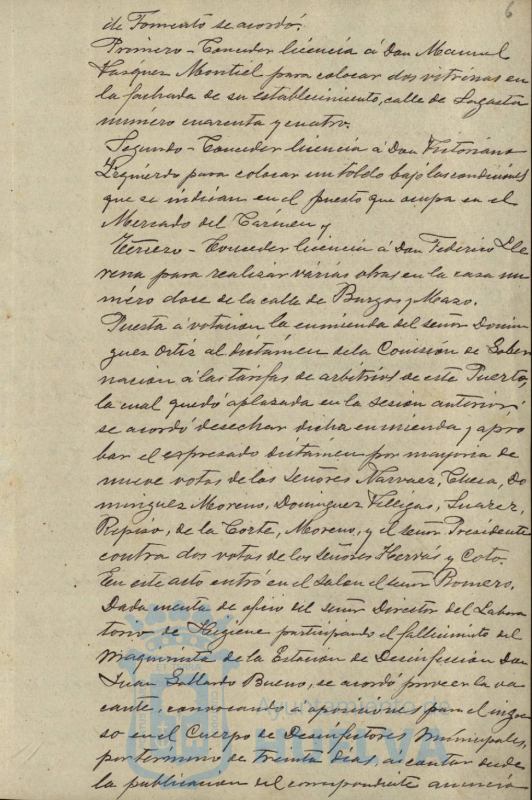 6
de Fomento se acordó:
Primero - Conceder licencia á Don Manuel
Vasquez Montiel para colocar dos vitrinas en
la fachada de su establecimiento, calle de Sagasta
numero cuarenta y cuatro.
Segundo - Conceder licencia á Don Victoriano
Izquierdo para colocar un toldo bajo las condiciones
que se indican en el puesto que ocupa en el
Mercado del Cármen y
Tercero - Conceder licencia á Don Federico Lle
rena para realizar várias obras en la casa nu
mero doce de la calle de Burgos y Mazo.
Puesta á votacion la enmienda del señor Domin
guez Ortiz al dictámen de la Comisión de Gober
nacion á las tarifas de arbitrios de este Puerto,
la cual quedó aplazada en la sesion anterior,
se acordó desechar dicha enmienda y apro
bar el expresado dictámen por mayoria de
nueve votos de los Señores Narvaez, Checa, Do
minguez Moreno, Dominguez Villegas, Suarez,
Repiso, de la Corte, Moreno, y el señor Presidente
contra dos votos de los Señores Hervás y Coto.
En este acto entró en el Salon el señor Romero.
Dada cuenta de oficio del señor Director del Labora
torio de Higiene participando el fallecimiento del
Maquinista de la Estación de Desinfección Don
Juan Gallardo Bueno, se acordó proveer la va
cante, convocando a oposiciones para el ingre
so en el Cuerpo de Desinfectores Municipales,
por término de treinta dias, á contar desde
la publicacion del correspondiente anuncio
Ayuntamiento de
HUELVA